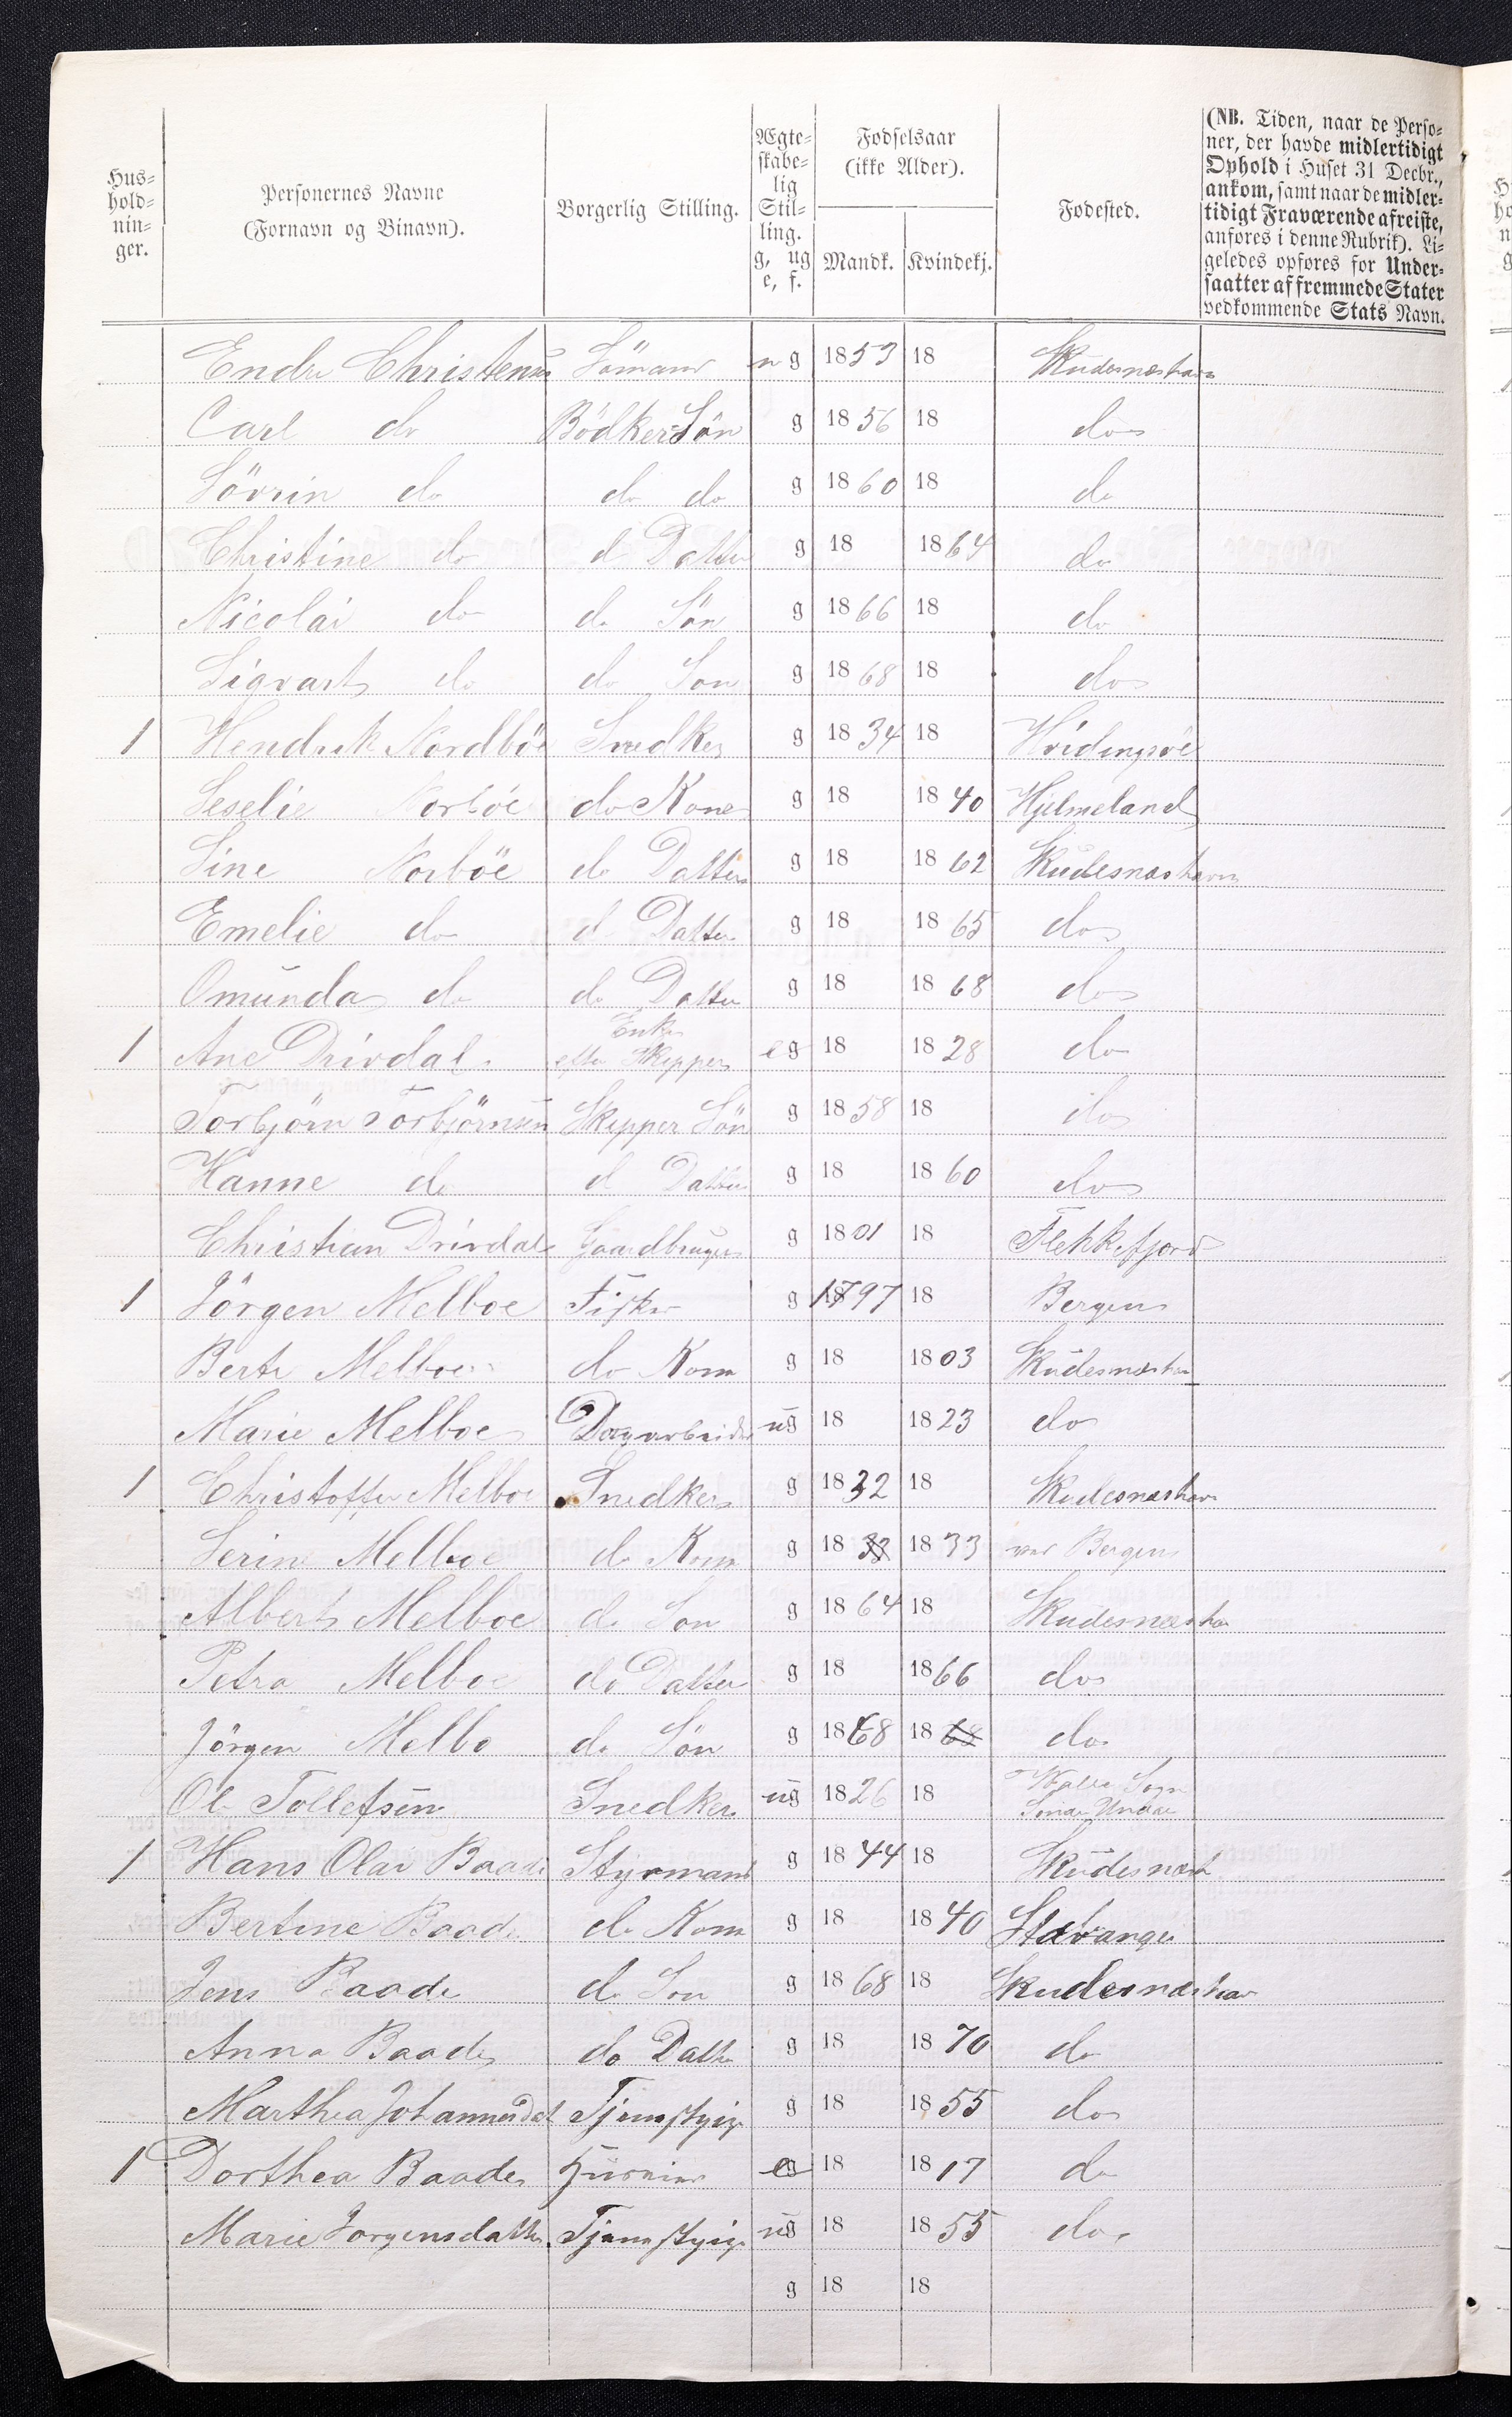 Hus-
hold-
nin-
ger.
Personernes Navne
(Fornavn og Binavn).
Borgerlig Stilling.
Ægte-
skabe-
lig
Stil-
ling.
g, ug
e, f.
Fødselsaar
(ikke Alder).
Mandk. Kvindekj.
Fødested.
(NB. Tiden, naar de Perso-
ner, der havde midlertidigt
Ophold i Huset 31 Decbr.,
ankom, samt naar de midler-
tidigt Fraværende afreiste,
anføres i denne Rubrik). Li-
geledes opføres for Under-
saatter af fremmede Stater
vedkommende Stats Navn.
Endre Christensen Sömand ug 1853 18 Skudesneshavn
Carl do Bödker Sön g 1856 18 do
Sövrin do do do g 1860 18 do
Christine do do Datter g 18 1864 do
Nicolai do do Sön g 1866 18 do
Sigvart do do Son g 1868 18 do
1 Hendrik Nordböe Snedker g 1834 18 Hvidingsöe
Seselie Norböe do Kone g 18 1840 Hjelmeland
Sine Norböe do Datter g 18 1862 Skudesnæshavn
Emelie do do Datter g 18 1865 do
Omunda do do Datter g 18 1868 do
1 Ane Drivdal Enke efter Skipper eg 18 1828 do
Torbjörn Torbjörnsen Skipper Sön g 1858 18 do
Hanne do do Datter g 18 1860 do
Christian Drivdal Gaardbruger g 1801 18 Flekkefjord
1 Jörgen Melboe Fisker g 1797 18 Bergen
Berte Melboe do Kone g 18 1803 Skudesnæshavn
Marie Melboe Dagarbeider ug 18 1823 do
1 Christoffer Melboe Snedker g 1832 18 Skudesnæshavn
Serine Melboe do Kone g 1833 1833 ved Bergen
Albert Melboe do Son g 1864 18 Skudesneshavn
Petra Melboe do Datter g 18 1866 do
Jörgen Melbo do Sön g 1868 1868 do
Ole Tollefsen Snedker ug 1826 18 Sogn
1 Hans Olai Baade Styrmand g 1844 18 Skudesnæsh
Bertine Baade do Kone g 18 1840 Stavanger
Jens Baade do Son g 1868 18 Skudesnæshavn
Anna Baade do Datter g 18 1870 do
Marthea Johannesdat Tjenestpige g 18 1855 do
1 Dorthea Baade eg 18 1817 do
Marie Jorgensdatter Tjenestpige ug 18 1855 do
g 18 18